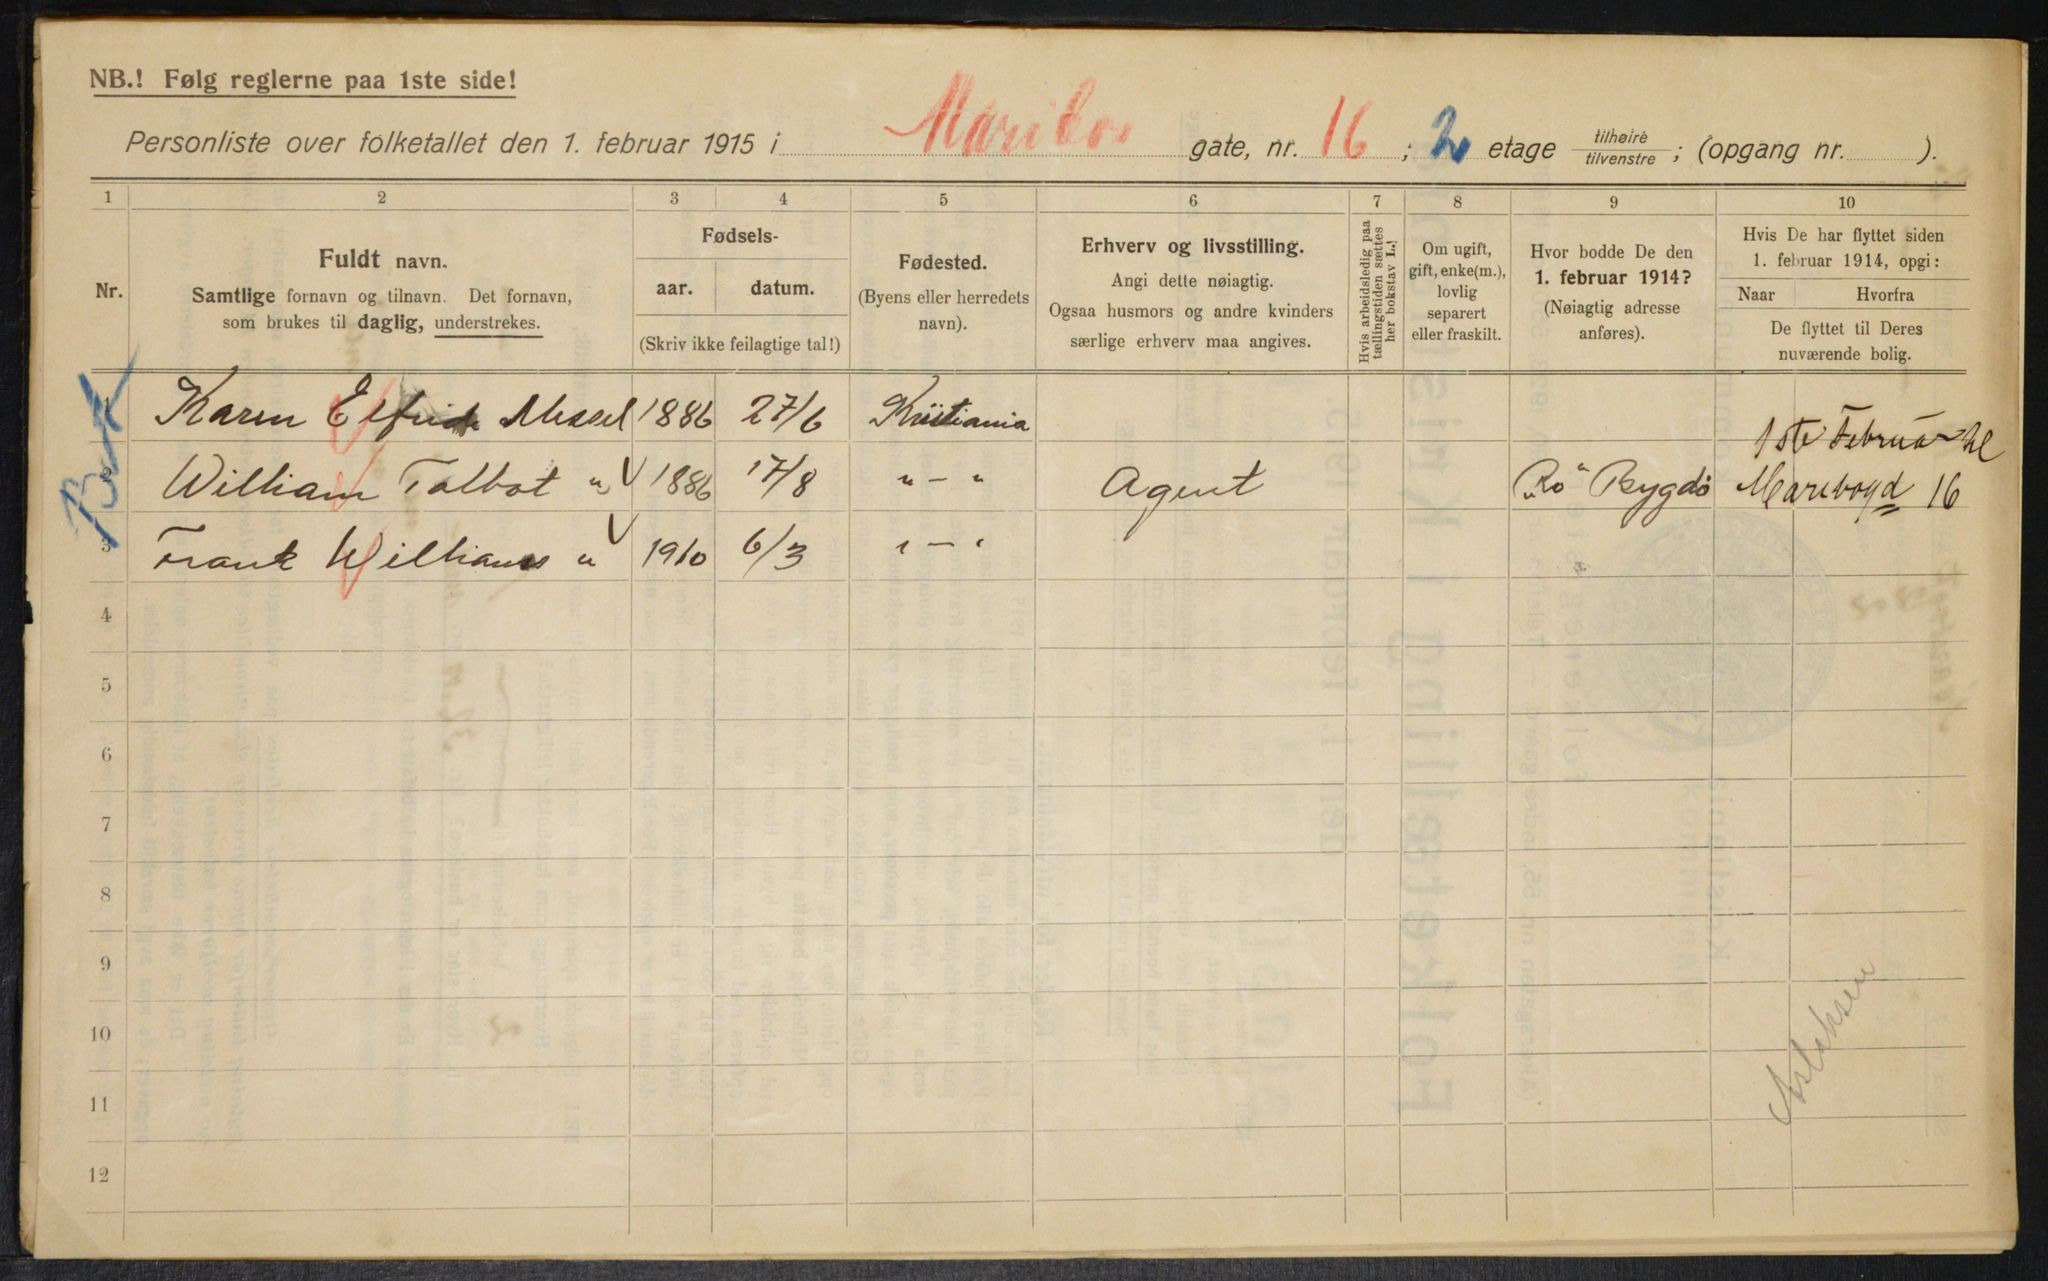 NB.! Følg reglerne paa 1ste side!
Personliste over folketallet den 1. februar 1915 i Maribos gate, nr. 16 ; 2 etage tilhøire tilvenstre ; (opgang nr. ).
1 2 3 4 5 6 7 8 9 10
Nr.
Fuldt navn.
Samtlige fornavn og tilnavn. Det fornavn,
som brukes til daglig, understrekes.
Fødsels-
aar. datum.
(Skriv ikke feilagtige tal!)
Fødested.
(Byens eller herredets
navn).
Erhverv og livsstilling.
Angi dette nøiagtig.
Ogsaa husmors og andre kvinders
særlige erhverv maa angives.
Hvis arbeidsledig paa
tællingstiden sættes
her bokstav L.)
Om ugift,
gift, enke(m.),
lovlig
separert
eller fraskilt.
Hvor bodde De den
1. februar 1914?
(Nøiagtig adresse
anføres).
Hvis De har flyttet siden
1. februar 1914, opgi:
Naar Hvorfra
De flyttet til Deres
nuværende bolig.
1 Karen Elfride Messel 1886 27/6 Kristiania 1ste Februar
2 William Talbot " 1886 17/8 " — " Agent "Ro" Bygdø Maribogd 16
3 Frank William " 1910 6/3 " — "
4
5
6
7
8
9
10
11
12